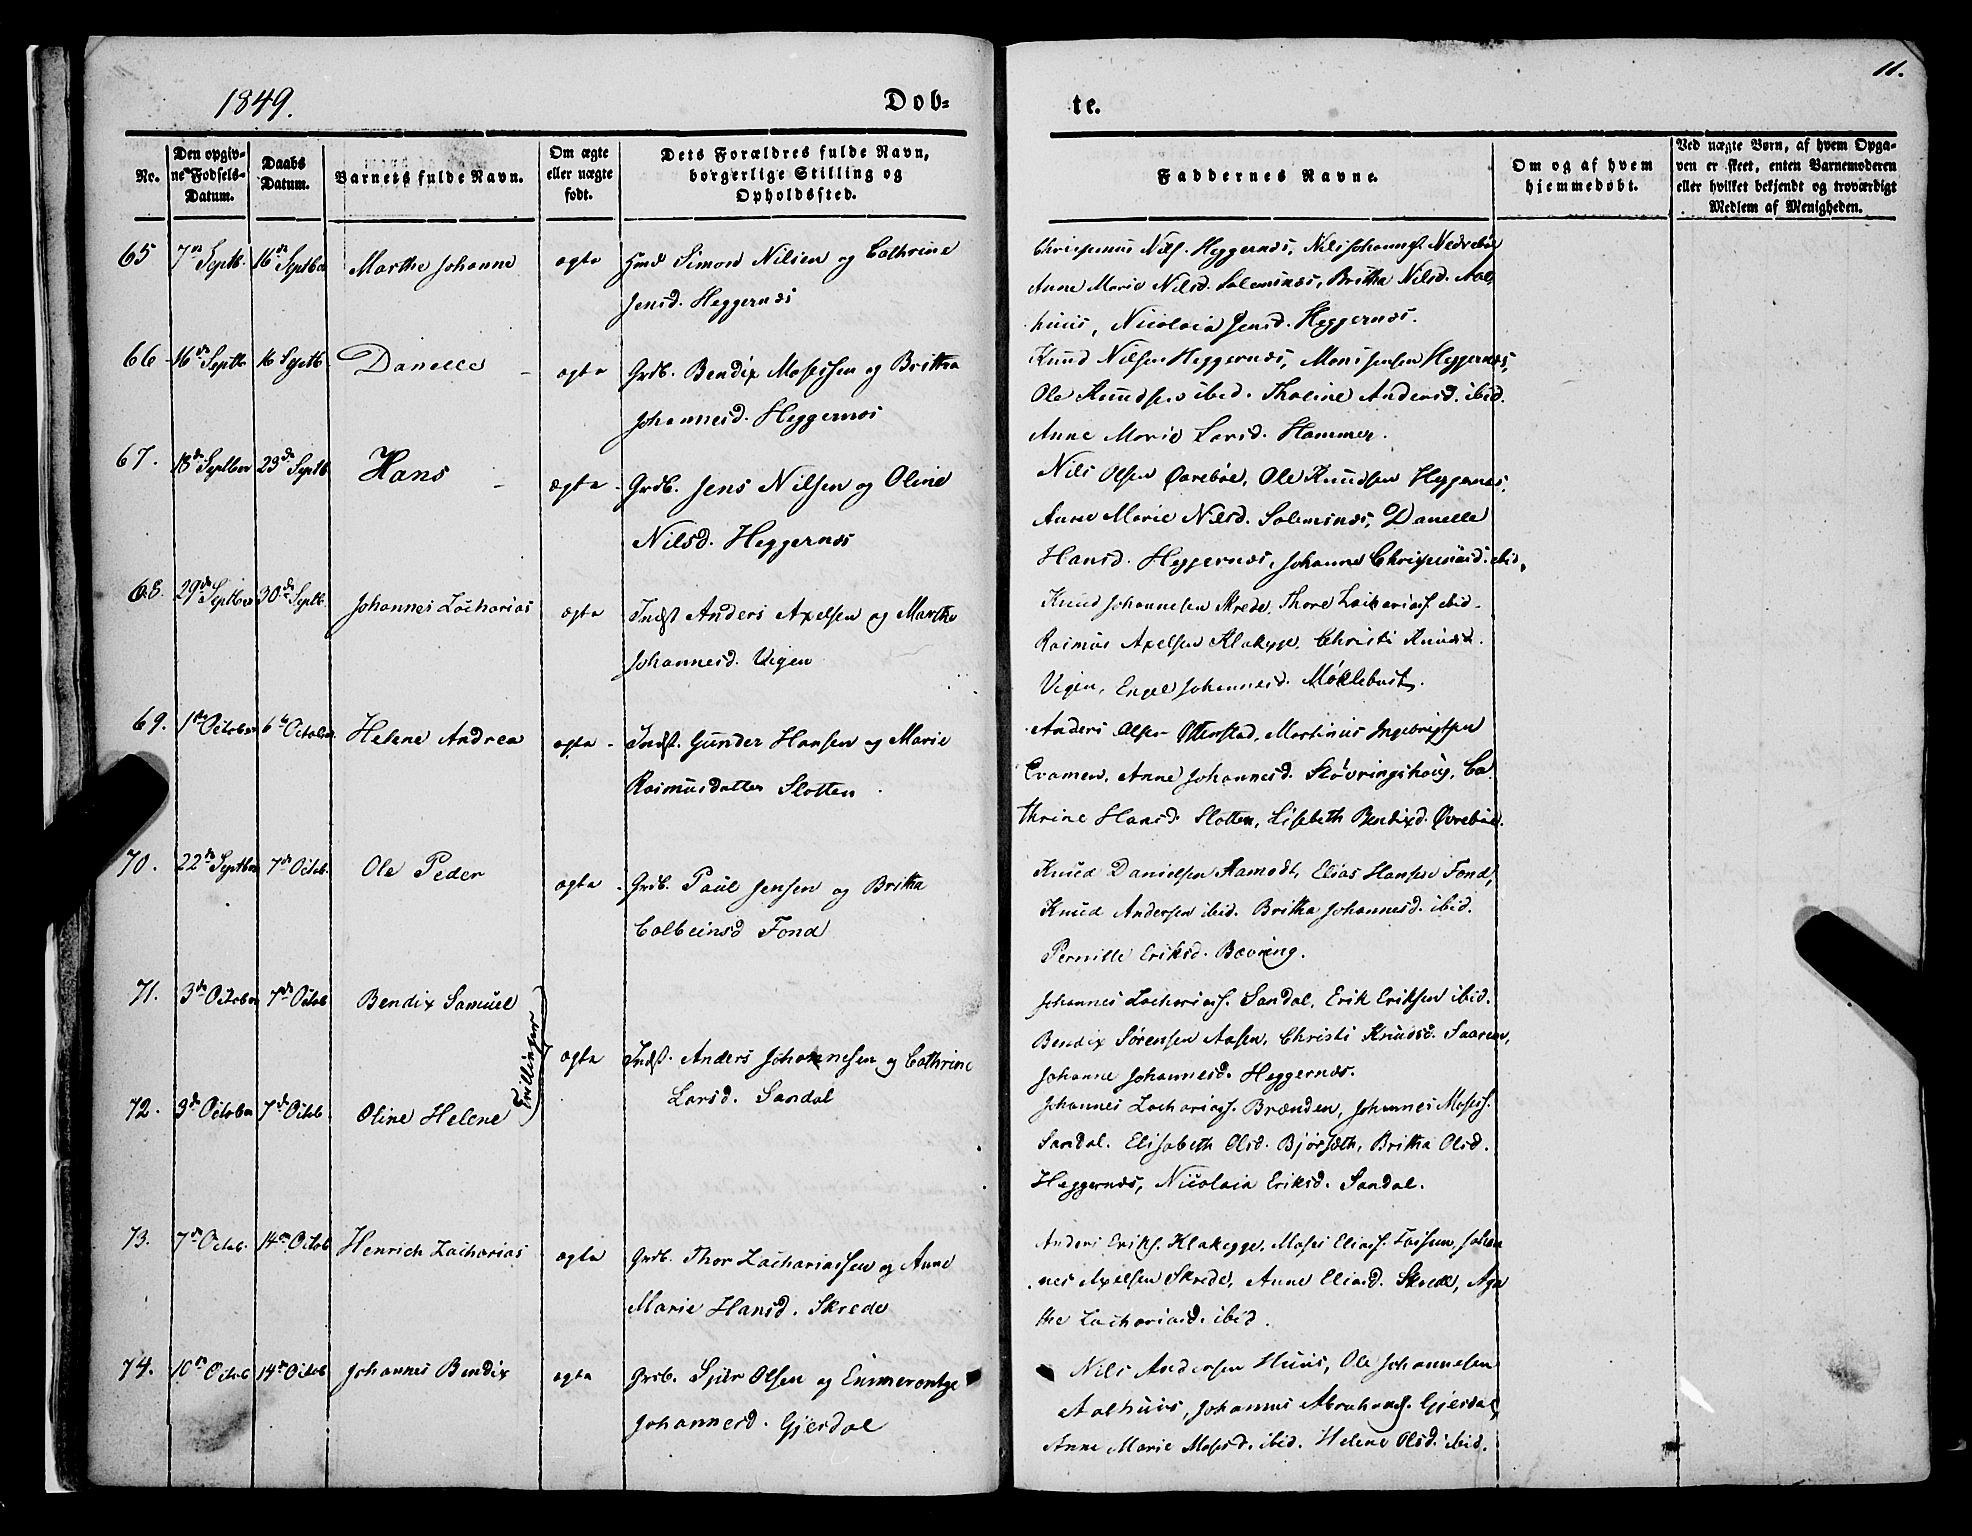 1849.
Døb-
te.
11.
No.
Den opgiv-
ne Fødsels-
Datum.
Daabs
Datum.
Barnets fulde Navn.
Om ægte
eller uægte
født.
Dets Forældres fulde Navn,
borgerlige Stilling og
Opholdssted.
Faddernes Navne.
Om og af hvem
hjemmedøbt.
Ved uægte Børn, af hvem Opga-
ven er skeet, enten Barnemoderen
eller hvilket bekjendt og troværdigt
Medlem af Menigheden.
65 7de Septb. 16de Septber Marthe Johanne ægte Hmd Simon Nilsen og Cathrine
Jensd. Heggernæs
Nils. Heggernæs, Nils Johanness. Nedrebøe
Anne Marie Nilsd. Solemsnæs, Britha Nilsd. Aal-
huus, Nicolaia Jensd. Heggernæs.
66 16de Septb. 16 Septb. Danelle ægte Grdb. Bendix Mosessen og Britha
Johannesd. Heggernæs
Knud Nilsen Heggernæs, Mons Jensen Heggernæs,
Ole Knudsen ibid. Thaline Andersd. ibid.
Anne Marie Larsd. Hammer.
67. 18de Septber 23de Septb. Hans ægte Grdb. Jens Nilsen og Oline
Nilsd. Heggernæs
Nils Olsen Øvrebøe, Ole Knudsen Heggernæs,
Anne Marie Nilsd. Solemsnæs, Danelle
Hansd. Heggernæs, Johanne ibid,
68. 29de Septber 30de Septb. Johannes Zacharias ægte Indst Anders Axelsen og Marthe
Johannesd. Vigen
Knud Johannesen Skrede, Thore Zachariass. ibid.
Rasmus Axelsen Klakegge, Christi Knudsd.
Vigen, Engel Johannesd. Møklebust.
69. 1ste October 6te October Helene Andrea ægte Indst. Gunder Hansen og Marie
Rasmusdatter Slotten
Anders Olsen Otterstad, Martinus Ingebrigtsen
Cramer, Anne Johannesd. Støvringshoug, Ca-
thrine Hansd. Slotten, Lisebeth Bendixd. Øvrebøe.
70. 22de Septber 7de Octob. Ole Peder ægte Grdb. Paul Jensen og Britha
Colbeinsd Fond
Knud Danielsen Aamodt, Elias Hansen Fond,
Knud Andersen ibid. Britha Johannesd. ibid.
Pernille Eriksd. Bævring.
71. 3de October 7de Octob Bendix Samuel
Johannes Zachariass. Sandal, Erik Eriksen ibid.
Bendix Sørensen Aasen, Christi Knudsd. Saaren,
Johanne Johannesd. Heggernæs.
Tvillinger ægte Indst. Anders Johannesen og Cathrine
Larsd. Sandal
72. 3de October 7de Octob. Oline Helene
Johannes Zachariass. Brænden, Johannes Mosess.
Sandal. Elisabeth Olsd. Bjørsæth, Britha Olsd.
Heggernæs, Nicolaia Eriksd. Sandal.
73. 7de Octob. 14de Octob Henrich Zacharias ægte Grdb. Thor Zachariassen og Anne
Marie Hansd. Skrede
Anders Eriks. Klakegge, Moses Eliass. Fossum, Johan-
nes Axelsen Skrede, Anne Eliasd. Skrede, Aga-
the Zachariasd. ibid.
74. 10de Octob 14de Octob Johannes Bendix ægte Grdb. Sjur Olsen og Emmerentze
Johannesd. Gjesdal
Nils Andersen Huus, Ole Johannesen
Aalhuus, Johannes Abrahams. Gjesdal,
Anne Marie Mosesd. ibid. Helene Olsd. ibid.